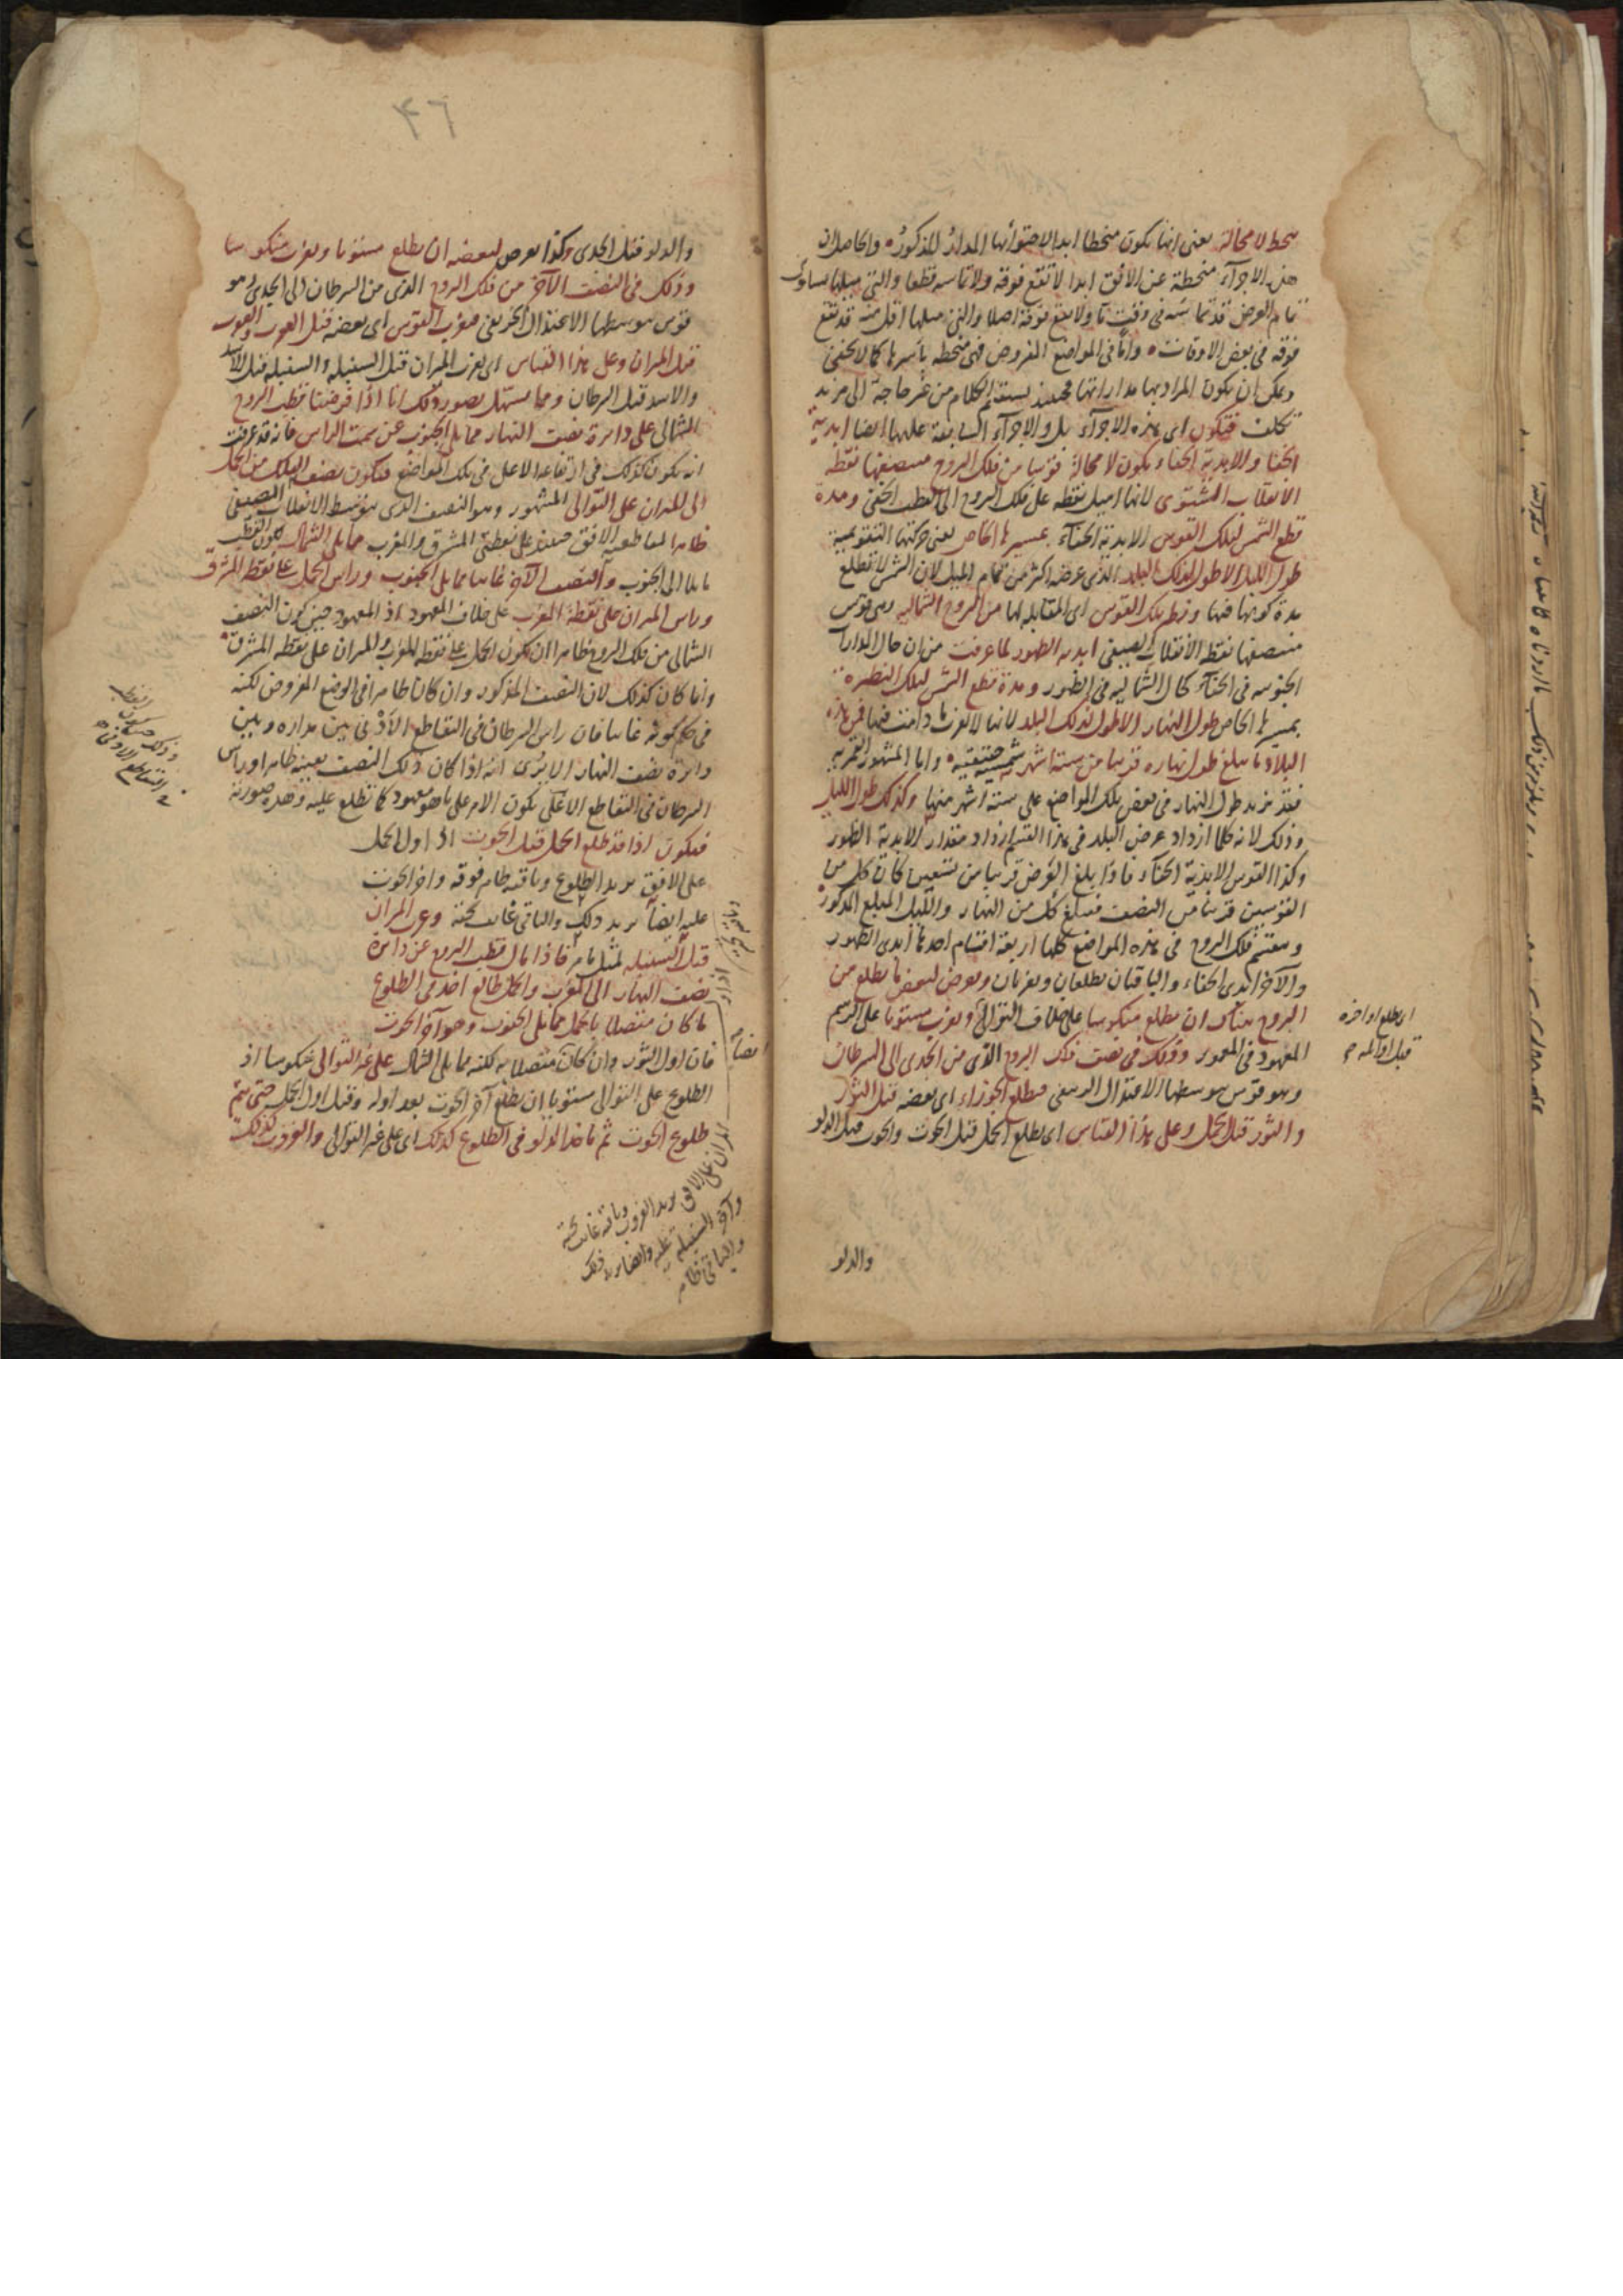 ينحط لا محالة يعني انها تكون منحطا ابدا لاحتوائها المدار المذكور والحاصل ان
هذه الاجزاء منحطة عن الافق ابدا لا تقع فوقه ولا تماسه قطعا والتي ميلها يساوي
تمام العرض قد تماسه في وقت ما ولا تقع فوقه اصلا والتي ميلها اقل منه قد تقع
فوقه في بعض الاوقات واما في المواضع المفروض فهي منحطة باسرها كما لا يخفى
ويمكن ان يكون المراد بها مداراتها فحينئذ يستقيم الكلام من غير حاجة الى مزيد
تكلف فتكون اي هذه الاجزاء بل والاجزاء السابعة عليها ايضا ابدية
الخفا والابدية الخفاء يكون لا محالة قوسا من فلك البروج منتصفها نقطة
الانقلاب الشتوي لانها اميل نقطة على فلك البروج الى القطب الخفي ومدة
قطع الشمس لتلك القوس الابدية الخفاء بمسيرها الخاص يعني حركتها التقويمية
طول الليل الاطول لذلك البلد الذي عرضه اكثر من تمام الميل لان الشمس لا تطلع
مدة كونها فيها ونظير تلك القوس اي المقابلة لها من البروج الشمالية وهي قوس
منتصفها نقطة الانقلاب الصيفي ابدية الظهور لما عرفت من ان حال المدارات
الجنوبية في الخفاء كحال الشمالية في الظهور ومدة قطع الشمس لتلك النظيرة
بمسيرها الخاص طول النهار الاطول لذلك البلد لانها لا تغرب ما دامت فيها فمن هذه
البلاد ما يبلغ طول نهاره قريبا من ستة اشهر شمسية حقيقية واما المشهور القمرية
فقد يزيد طول النهار في بعض تلك المواضع على ستة اشهر منها وكذلك طول الليل
وذلك لانه كلما ازداد عرض البلد في هذا القسم ازداد مقدار الابدية الظهور
وكذا القوس الابدية الخفاء فاذا بلغ العرض قريبا من تسعين كانت كل من
القوسين قريبا من النصف فيبلغ كل من النهار والليل المبلغ المذكور
وينقسم فلك البروج في هذه المواضع كلها اربعة اقسام احدها ابدي الظهور
والآخر ابدي الخفاء والباقيان يطلعان ويغربان ويعرض لبعض ما يطلع من
البروج هناك ان يطلع منكوسا على خلاف التوالي ويغرب مستويا على الرسم
المعهود في المعمور وذلك في نصف فلك البروج الذي من الجدي الى السرطان
وهو قوس يوسطها الاعتدال الربيعي فيطلع الجوزاء اي بعضه قبل الثور
والثور قبل الحمل وعلى هذا القياس اي يطلع الحمل قبل الحوت والحوت قبل الدلو
اي يطلع اواخره
قبل اوائله
والدلو
٤٦
والدلو قبل الجدي وكذا يعرض لبعضه ان يطلع مستويا ويغرب منكوسا
وذلك في النصف الآخر من فلك البروج الذي من السرطان الى الجدي وهو
قوس يوسطها الاعتدال الخريفي فيغرب القوس اي بعضه قبل العقرب والعقرب
قبل الميزان وعلى هذا القياس اي يغرب الميزان قبل السنبلة والسنبلة قبل الاسد
والاسد قبل السرطان ومما يسهل تصور ذلك انا اذا فرضنا قطب البروج
الشمالي على دائرة نصف النهار مما يلي الجنوب عن سمت الراس فانه قد عرفت
انه يكون كذلك في ارتفاعه الاعلى في تلك المواضع فيكون نصف الفلك من الحمل
الى الميزان على التوالي المشهور وهو النصف الذي يتوسطه الانقلاب الصيفي
ظاهرا لمقاطعة الافق حينئذ على نقطتي المشرق والمغرب مما يلي الشمال لكون القطب
مايلا الى الجنوب والنصف الآخر غائبا مما يلي الجنوب وراس الحمل على نقطة المشرق
وراس الميزان على نقطة المغرب على خلاف المعهود اذ المعهود حين كون النصف
الشمالي من فلك البروج ظاهرا ان يكون الحمل على نقطة المغرب والميزان على نقطة المشرق
وانما كان كذلك لان النصف المذكور وان كان ظاهرا في الوضع المفروض لكنه
في حكم كونه غائبا فان راس السرطان في التقاطع الادنى بين مداره وبين
دائرة نصف النهار الا يرى انه اذا كان ذلك النصف بعينه ظاهرا وراس
السرطان في التقاطع الاعلى يكون الامر على ما هو معهود كما تطلع عليه وهذه صورته
فيكون اذا قد طلع الحمل قبل الحوت اذ اول الحمل
على الافق يريد الطلوع وباقيه ظاهر فوقه واخر الحوت
عليه ايضا يريد ذلك والباقي غائب تحته وغرب الميزان
قبل السنبلة لمثل ما مر فاذا مال قطب البروج عن دائرة
نصف النهار الى المغرب والحمل طالع اخذ في الطلوع
ما كان متصلا بالحمل مما يلي الجنوب وهو آخر الحوت
فان اول الثور وان كان متصلا به لكنه مما يلي الشمال على غير التوالي منكوسا اذ
الطلوع على التوالي مستويا ان يطلع آخر الحوت بعد اوله وقبل اول الحمل حتى يتم
طلوع الحوت ثم ياخذ الدلو في الطلوع كذلك اي على غير التوالي والغروب كذلك
ايضا
الميزان على الافق يريد الغروب وباقيه غائب تحته
وآخر السنبلة عليه وايضا يريد ذلك
والباقي ظاهر